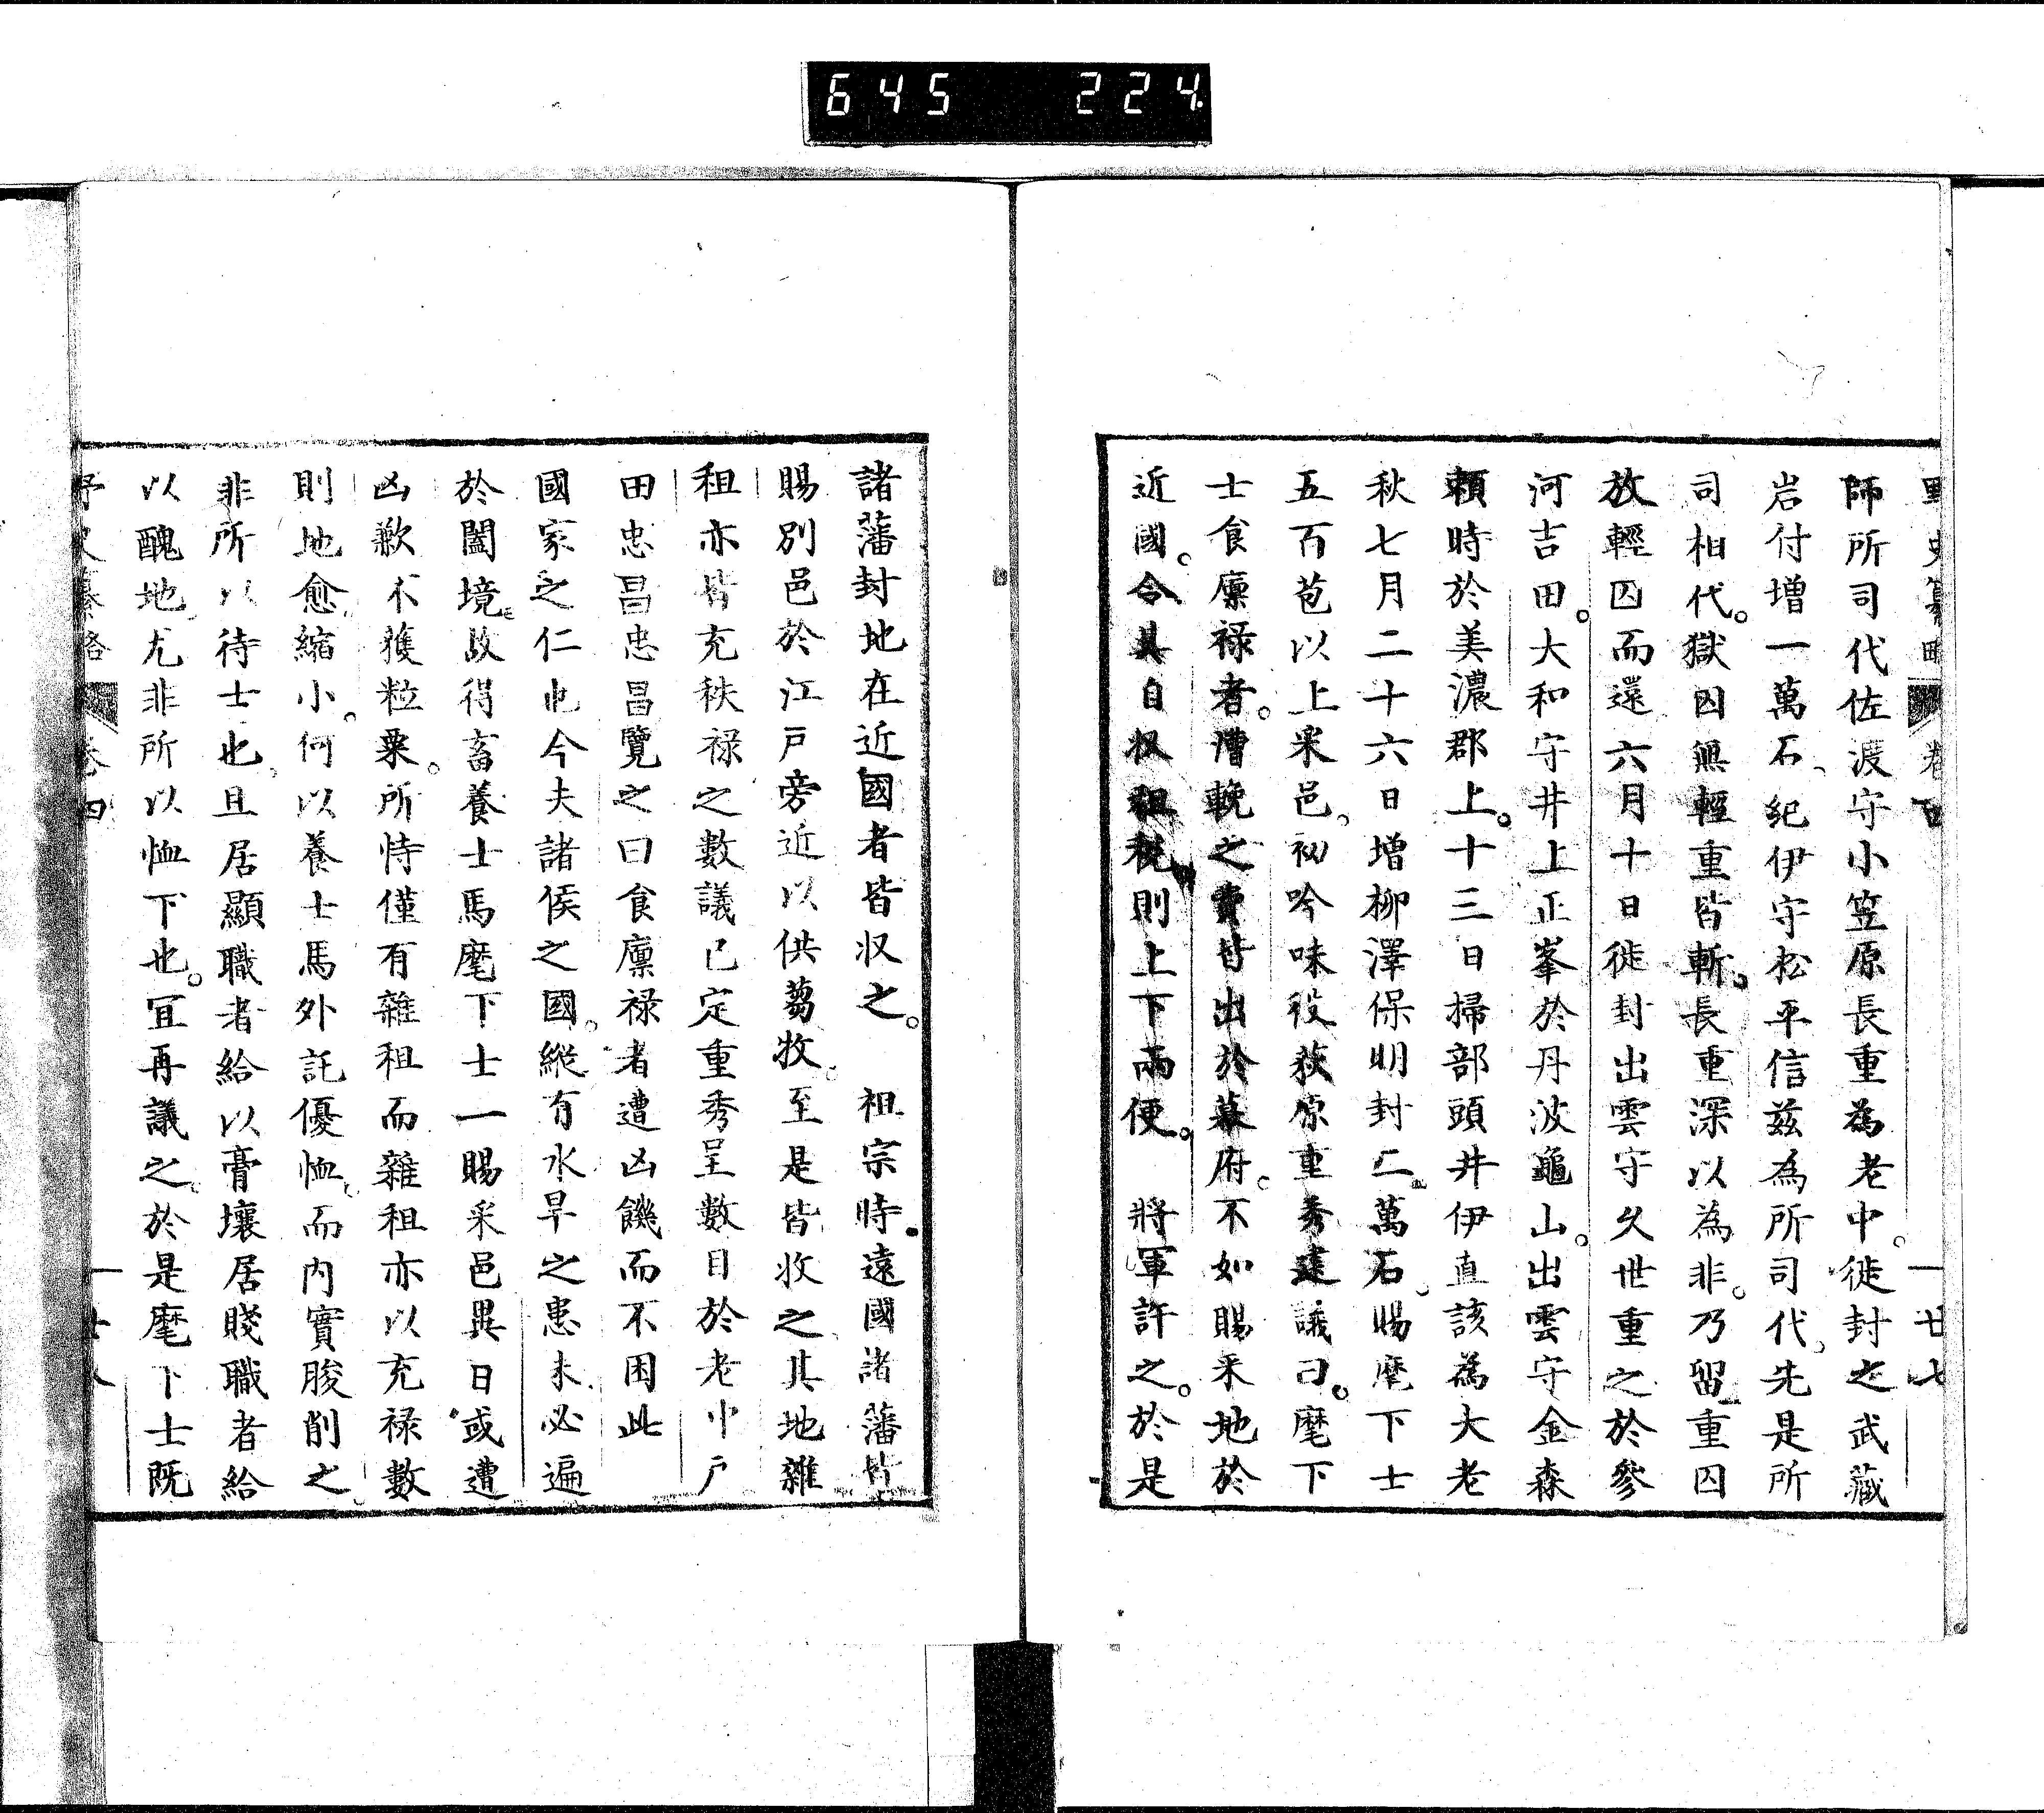 645 224
野史纂略 卷四 一 廿七
師所司代佐渡守小笠原長重為老中。徙封之武藏
岩付増一萬石、紀伊守松平信茲為所司代、先是所
司相代。獄囚無輕重皆斬。長重深以為非。乃留重囚
放輕囚而還六月十日徙封出雲守久世重之於參
河吉田。大和守井上正峯於丹波龜山。出雲守金森
頼時於美濃郡上。十三日掃部頭井伊直該為大老
秋七月二十六日増柳澤保明封二萬石。賜麾下士
五百苞以上采邑。初吟味役荻原重秀建議曰。麾下
士食廩禄者。漕輓之費皆出於幕府。不如賜采地於
近國。令其自収租税則上下兩便。 將軍許之。於是
諸藩封地在近國者皆収之。 祖宗時。遠國諸藩皆
賜別邑於江戸旁近以供蒭牧。至是皆收之其地雜
租亦皆充秩禄之數議已定重秀呈數目於老中戸
田忠昌忠昌覽之曰食廩禄者遭凶饑而不困此
國家之仁也今夫諸侯之國。縱有水旱之患未必遍
於闔境。故得畜養士馬麾下士一賜采邑異日或遭
凶歉不獲粒粟。所恃僅有雜租而雜租亦以充禄數
則地愈縮小。何以養士馬外託優恤。而内實朘削之。
非所以待士也。且居顯職者給以膏壤居賤職者給
以醜地。尤非所以恤下也。宜再議之。於是麾下士既
野史纂略 卷四 一 廿八